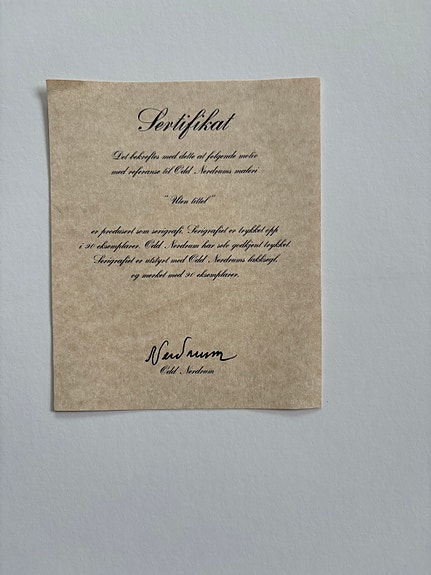 Sertifikat
Det bekreftes med dette at følgende motiv
med referanse til Odd Nerdrums maleri
"Uten tittel"
er produsert som serigrafi. Serigrafiet er trykket opp
i 90 eksemplarer. Odd Nerdrum har selv godkjent trykket.
Serigrafiet er utstyrt med Odd Nerdrums lakksegl,
og merket med 90 eksemplarer.
Nerdrum
Odd Nerdrum